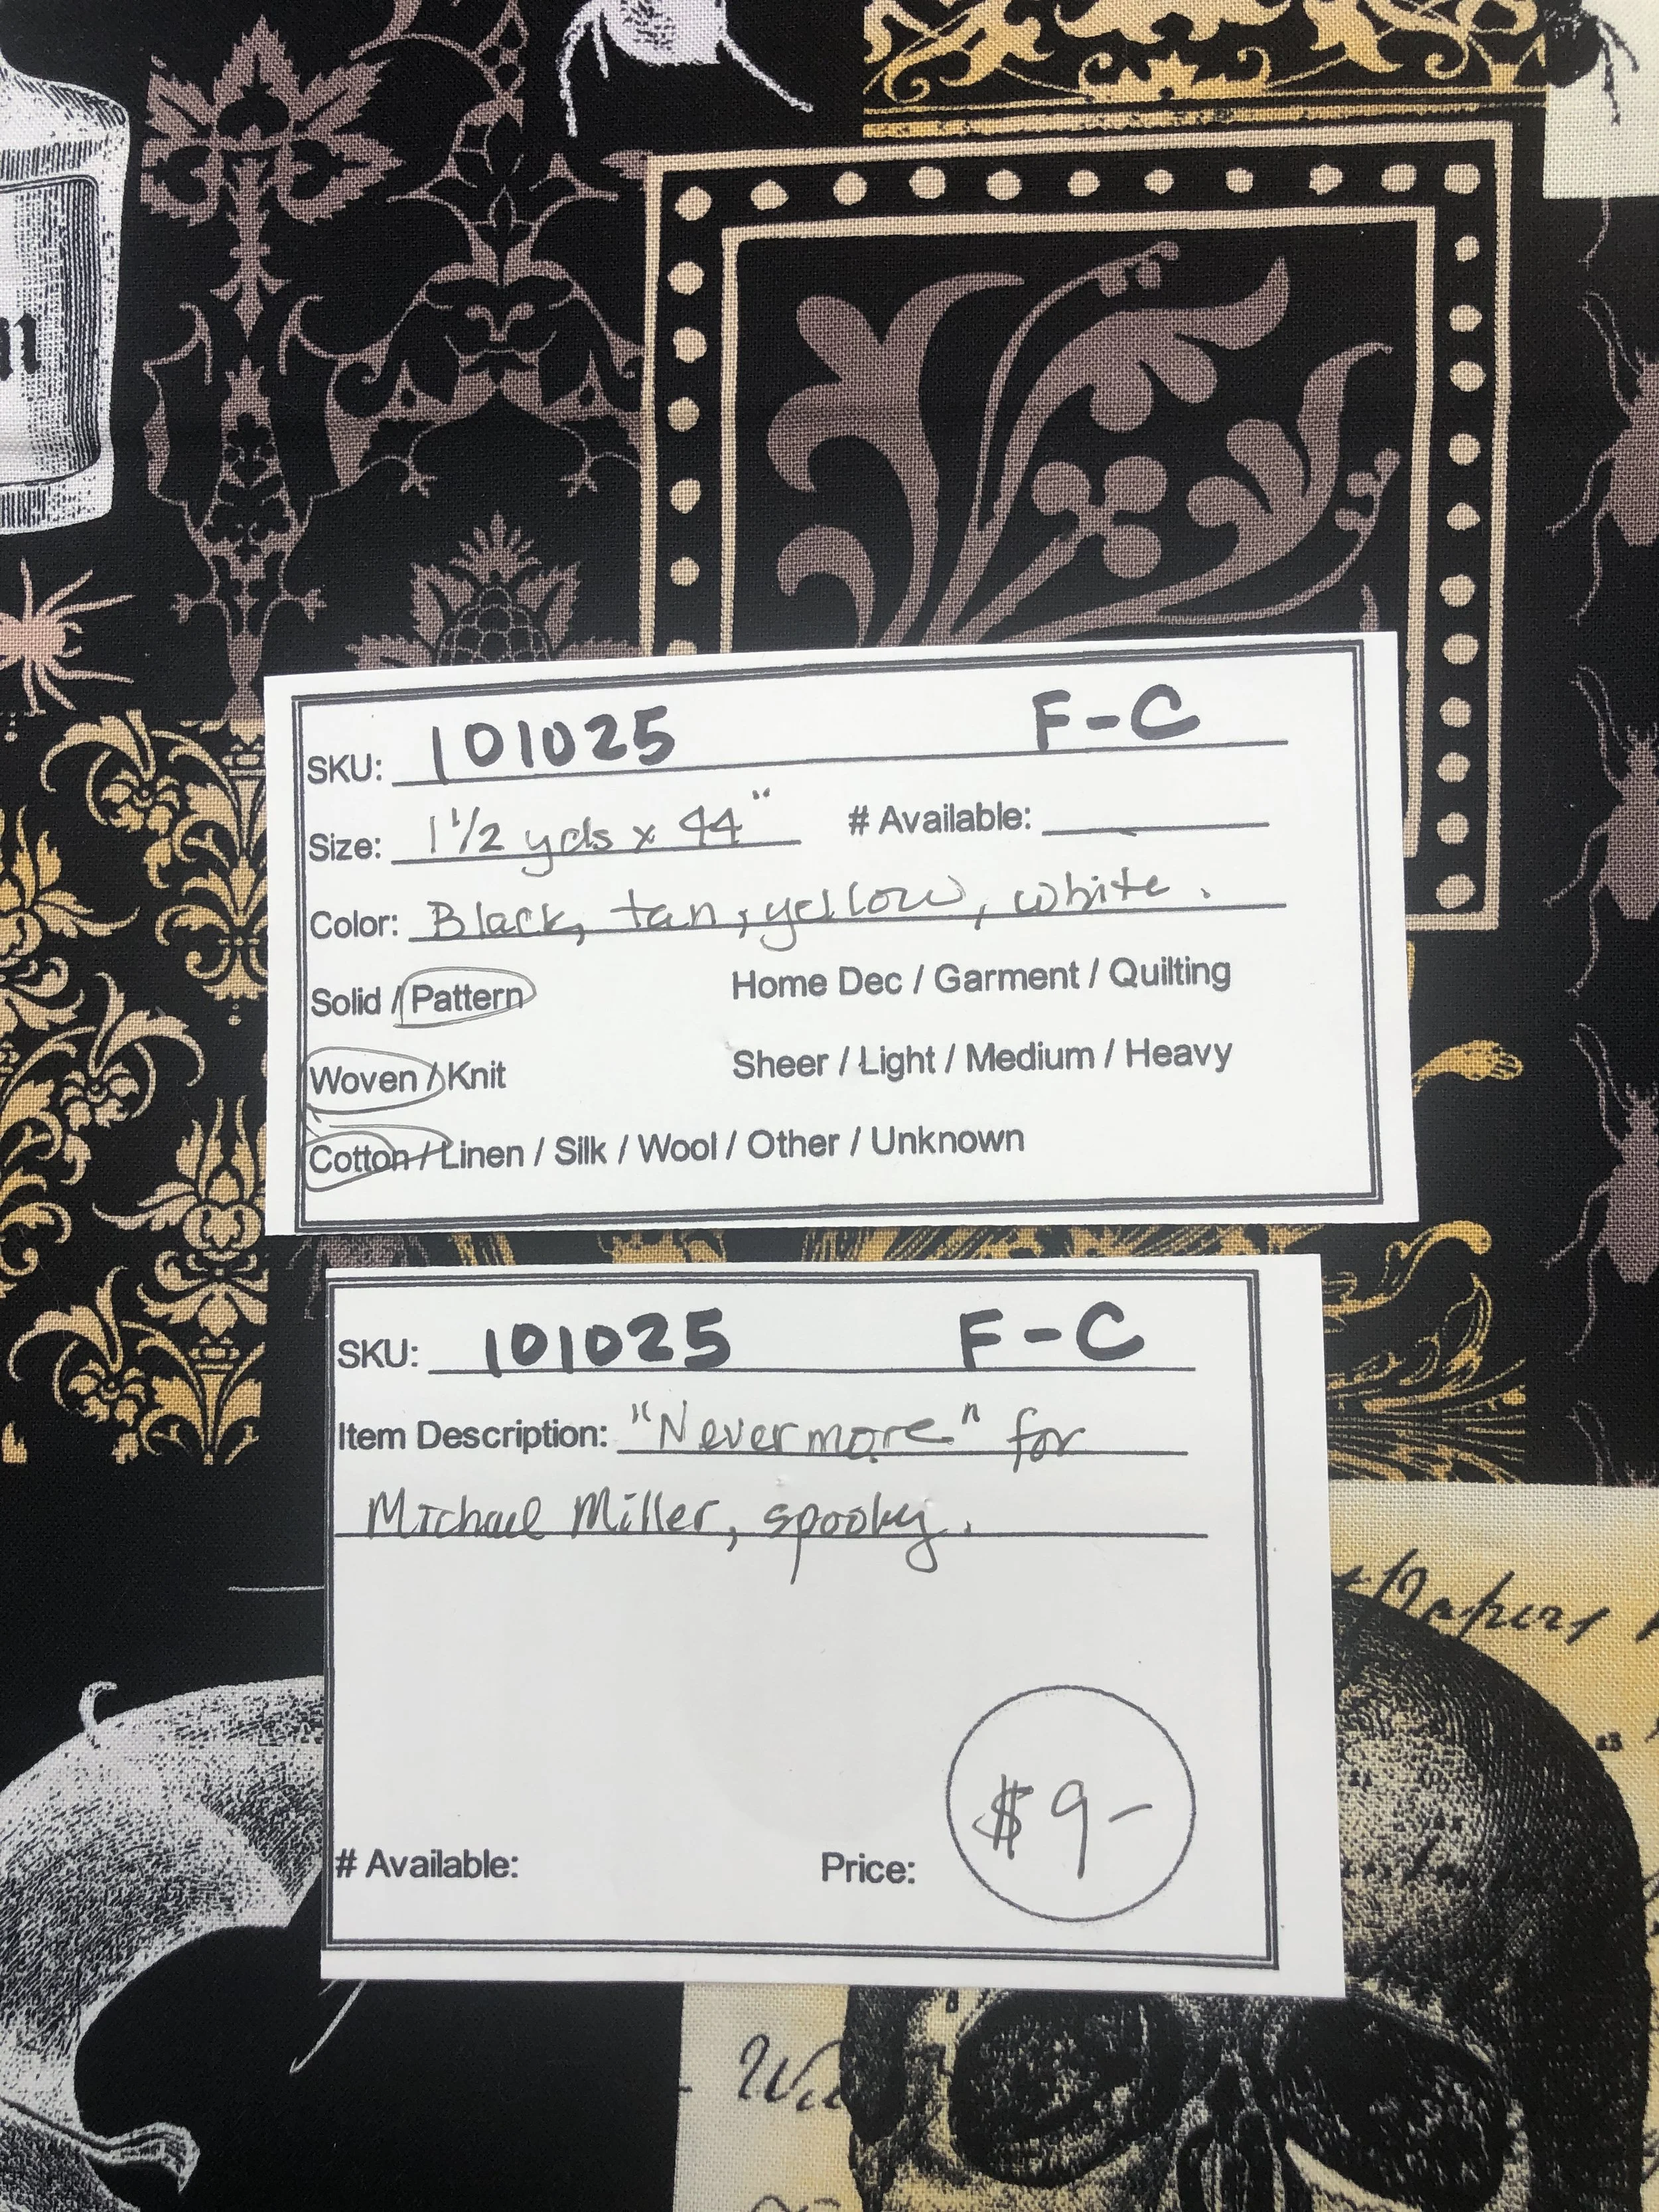 n
SKU: 101025 F-C
Size: 1 1/2 yds x 44" # Available:
Color: Black, tan, yellow, white.
Solid / Pattern Home Dec / Garment / Quilting
Woven / Knit Sheer / Light / Medium / Heavy
Cotton / Linen / Silk / Wool / Other / Unknown
SKU: 101025 F-C
Item Description: "Nevermore" for
Michael Miller, spooky.
Papers
# Available: Price: $9-